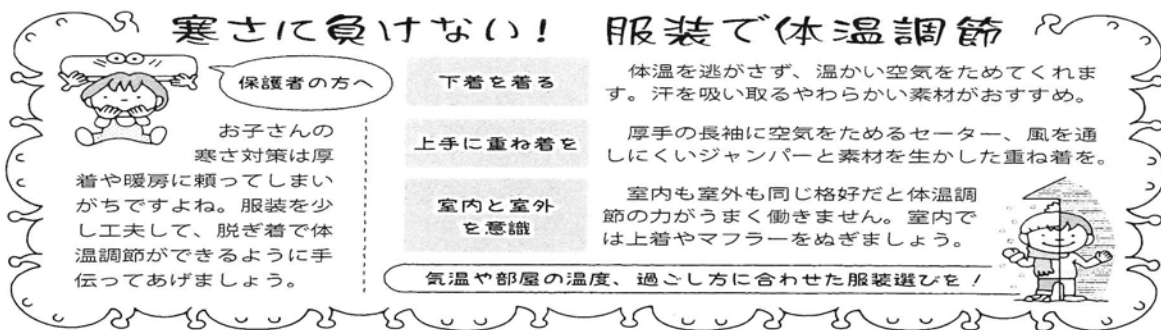 寒さに負けない! 服装で体温調節
保護者の方へ
お子さんの
寒さ対策は厚
着や暖房に頼ってしまい
がちですよね。服装を少
し工夫して、脱ぎ着で体
温調節ができるように手
伝ってあげましょう。
下着を着る
体温を逃がさず、温かい空気をためてくれま
す。汗を吸い取るやわらかい素材がおすすめ。
上手に重ね着を
厚手の長袖に空気をためるセーター、風を通
しにくいジャンパーと素材を生かした重ね着を。
室内と室外
を意識
室内も室外も同じ格好だと体温調
節の力がうまく働きません。室内で
は上着やマフラーをぬぎましょう。
気温や部屋の温度、過ごし方に合わせた服装選びを!